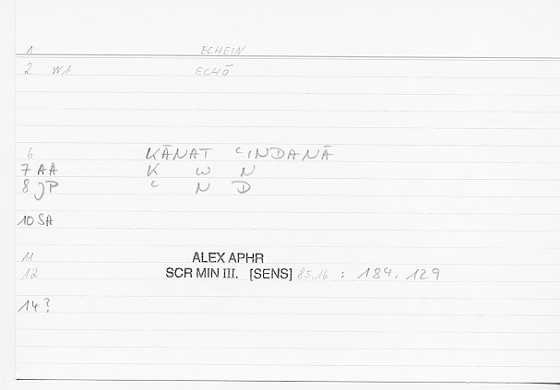 1 ECHEIN
2 WA ECHŌ
6 KĀNAT ʿINDANĀ
7 AA K W N
8 JP ʿ N D
10 SA
11 ALEX APHR
12 SCR MIN III. [SENS] 85,16 : 184.129
14?